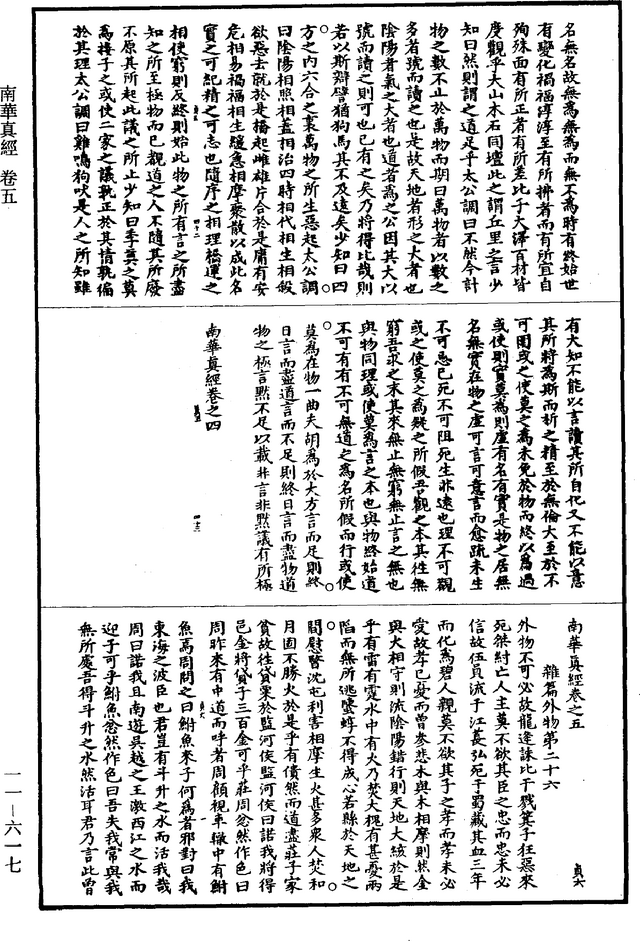 南華真經 卷五
一一—六一七
名無名故無為無為而無不為時有終始世
有變化禍福淳淳至有所拂者而有所宜自
殉殊面有所正者有所差比于大澤百材皆
度觀乎大山木石同壇此之謂丘里之言少
知曰然則謂之道足乎太公調曰不然今計
物之數不止於萬物而期曰萬物者以數之
多者號而讀之也是故天地者形之大者也
陰陽者氣之大者也道者為之公因其大以
號而讀之則可也已有之矣乃將得比哉則
若以斯辯譬猶狗馬其不及遠矣少知曰四
方之內六合之裏萬物之所生惡起太公調
曰陰陽相照相蓋相治四時相代相生相殺
欲惡去就於是橋起雌雄片合於是庸有安
危相易禍福相生緩急相摩聚散以成此名
實之可紀精之可志也隨序之相理橋運之
相使窮則反終則始此物之所有言之所盡
知之所至極物而已覩道之人不隨其所廢
不原其所起此議之所止少知曰季真之莫
為接子之或使二家之議孰正於其情孰徧
於其理太公調曰雞鳴狗吠是人之所知雖
有大知不能以言讀其所自化又不能以意
其所將為斯而析之精至於無倫大至於不
可圍或之使莫之為未免於物而終以為過
或使則實莫為則虛有名有實是物之居無
名無實在物之虛可言可意言而愈疏未生
不可忌已死不可阻死生非遠也理不可觀
或之使莫之為疑之所假吾觀之本其往無
窮吾求之末其來無止無窮無止言之無也
與物同理或使莫為言之本也與物終始道
不可有有不可無道之為名所假而行或使
莫為在物一曲夫胡為於大方言而足則終
日言而盡道言而不足則終日言而盡物道
物之極言默不足以載非言非默議有所極
南華真經卷之四
南華真經卷之五
貞六
雜篇外物第二十六
外物不可必故龍逢誅比干戮箕子狂惡來
死桀紂亡人主莫不欲其臣之忠而忠未必
信故伍員流于江萇弘死于蜀藏其血三年
而化為碧人親莫不欲其子之孝而孝未必
愛故孝己憂而曾參悲木與木相摩則然金
與火相守則流陰陽錯行則天地大絯於是
乎有雷有霆水中有火乃焚大槐有甚憂兩
陷而無所逃螴蜳不得成心若縣於天地之
間慰暋沈屯利害相摩生火甚多衆人焚和
月固不勝火於是乎有僓然而道盡莊子家
貧故往貸粟於監河侯監河侯曰諾我將得
邑金將貸子三百金可乎莊周忿然作色曰
周昨來有中道而呼者周顧視車轍中有鮒
魚焉周問之曰鮒魚來子何為者邪對曰我
東海之波臣也君豈有斗升之水而活我哉
周曰諾我且南遊吳越之王激西江之水而
迎子可乎鮒魚忿然作色曰吾失我常與我
無所處吾得斗升之水然活耳君乃言此曾